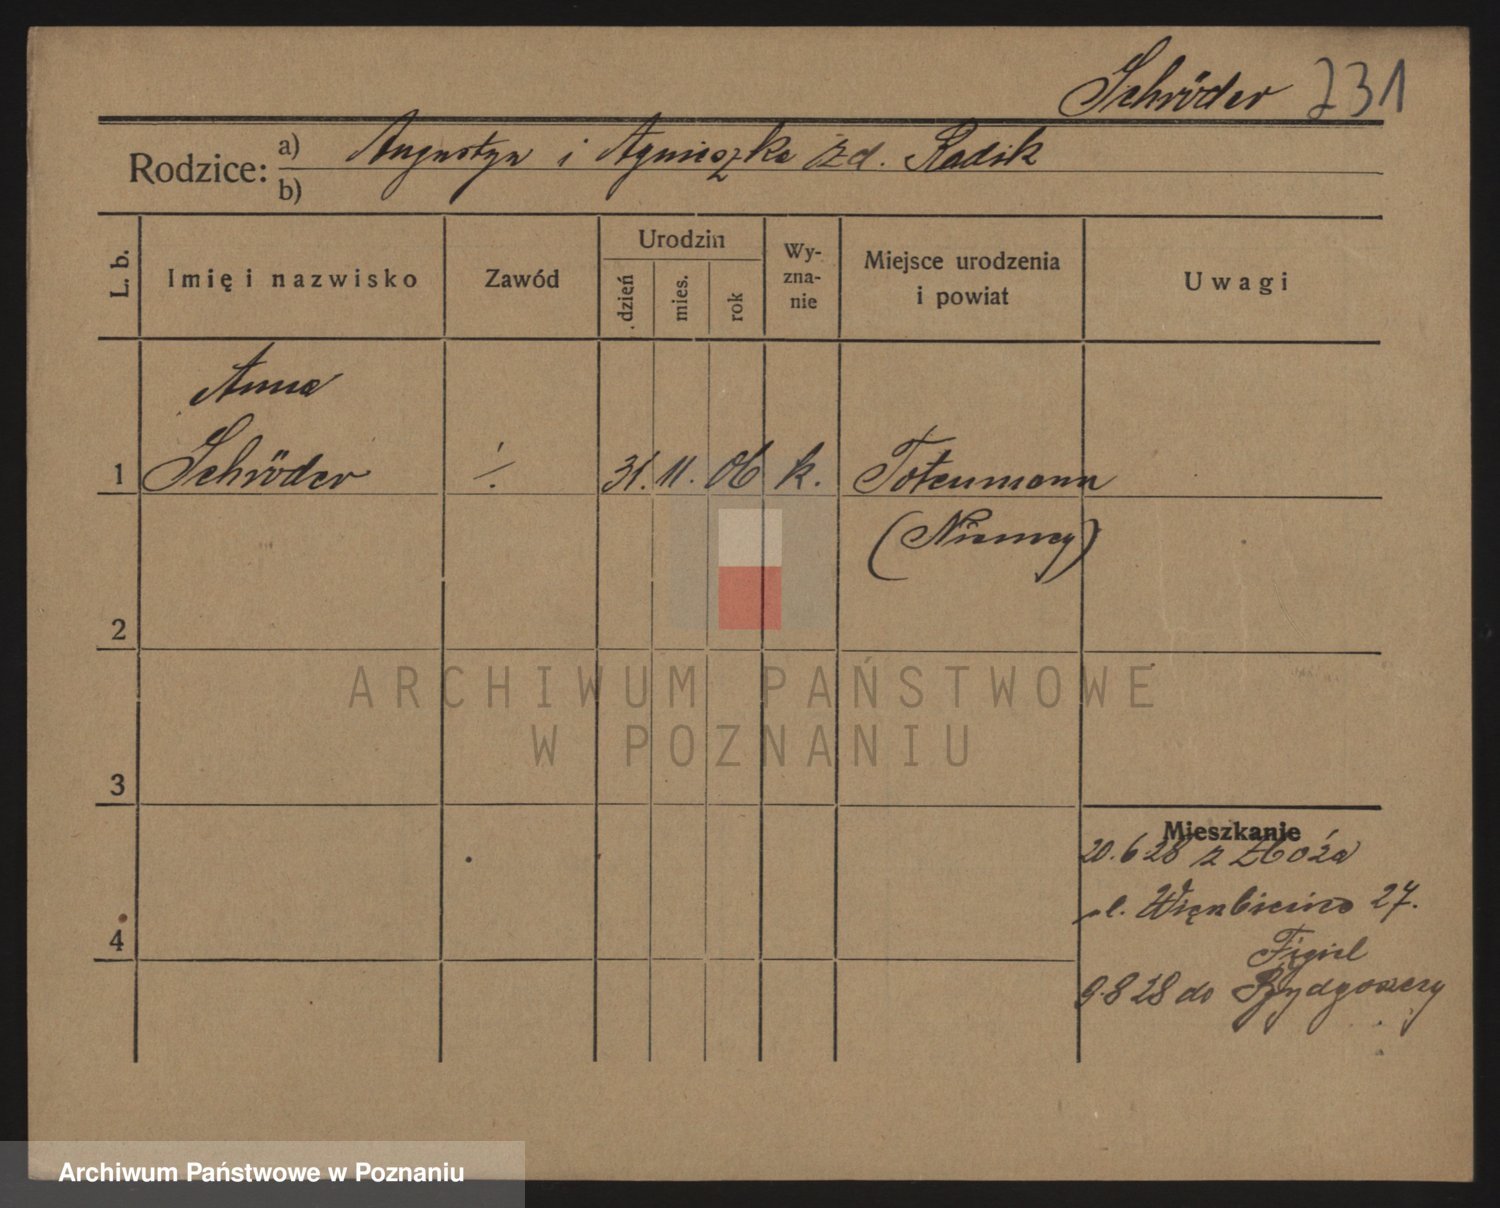 Schröder 231
Rodzice: a) Augustyn i Agnieszka zd. Radik
b)
L. b. Imię i nazwisko Zawód Urodzin dzień mies. rok Wy-zna-nie Miejsce urodzenia i powiat Uwagi
Anna
1 Schröder ·/· 31. 11. 06 k. Totenmann
(Niemcy)
2
ARCHIWUM PAŃSTWOWE
W POZNANIU
3
Mieszkanie
20.6.28 z
ul. 27.
Figiel
4
9.8 28 do Bydgoszczy
Archiwum Państwowe w Poznaniu